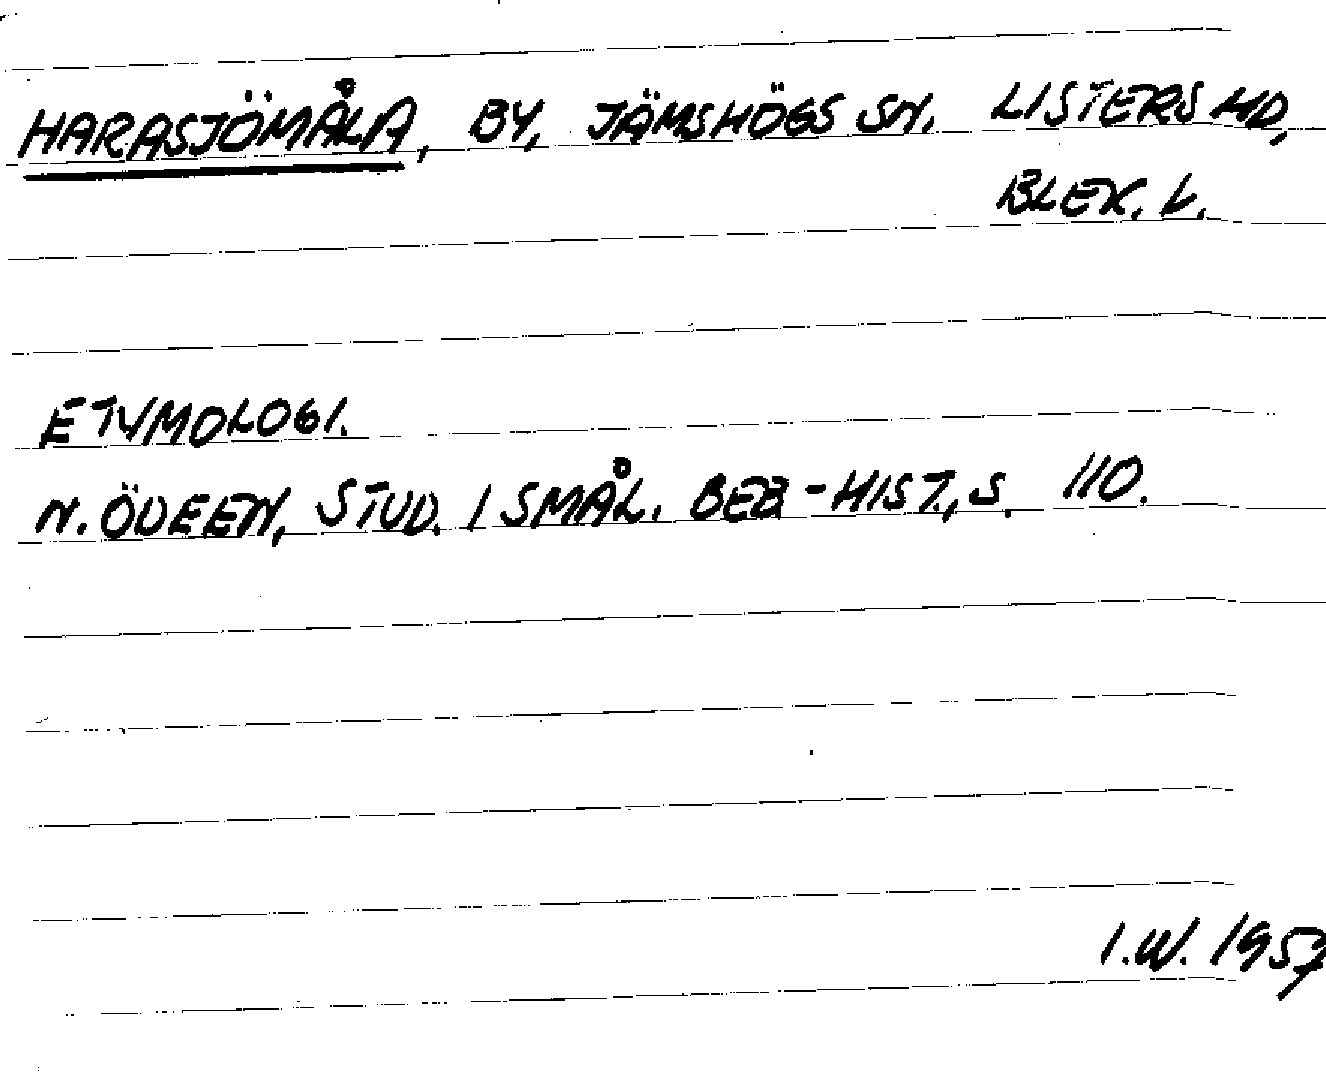 HARASJÖMÅLA, BY, JÄMSHÖGS SN. LISTERS HD,
BLEK. L.
ETYMOLOGI.
N. ÖDEEN, STUD. I SMÅL. BEB-HIST., S. 110.
I.W. 1957